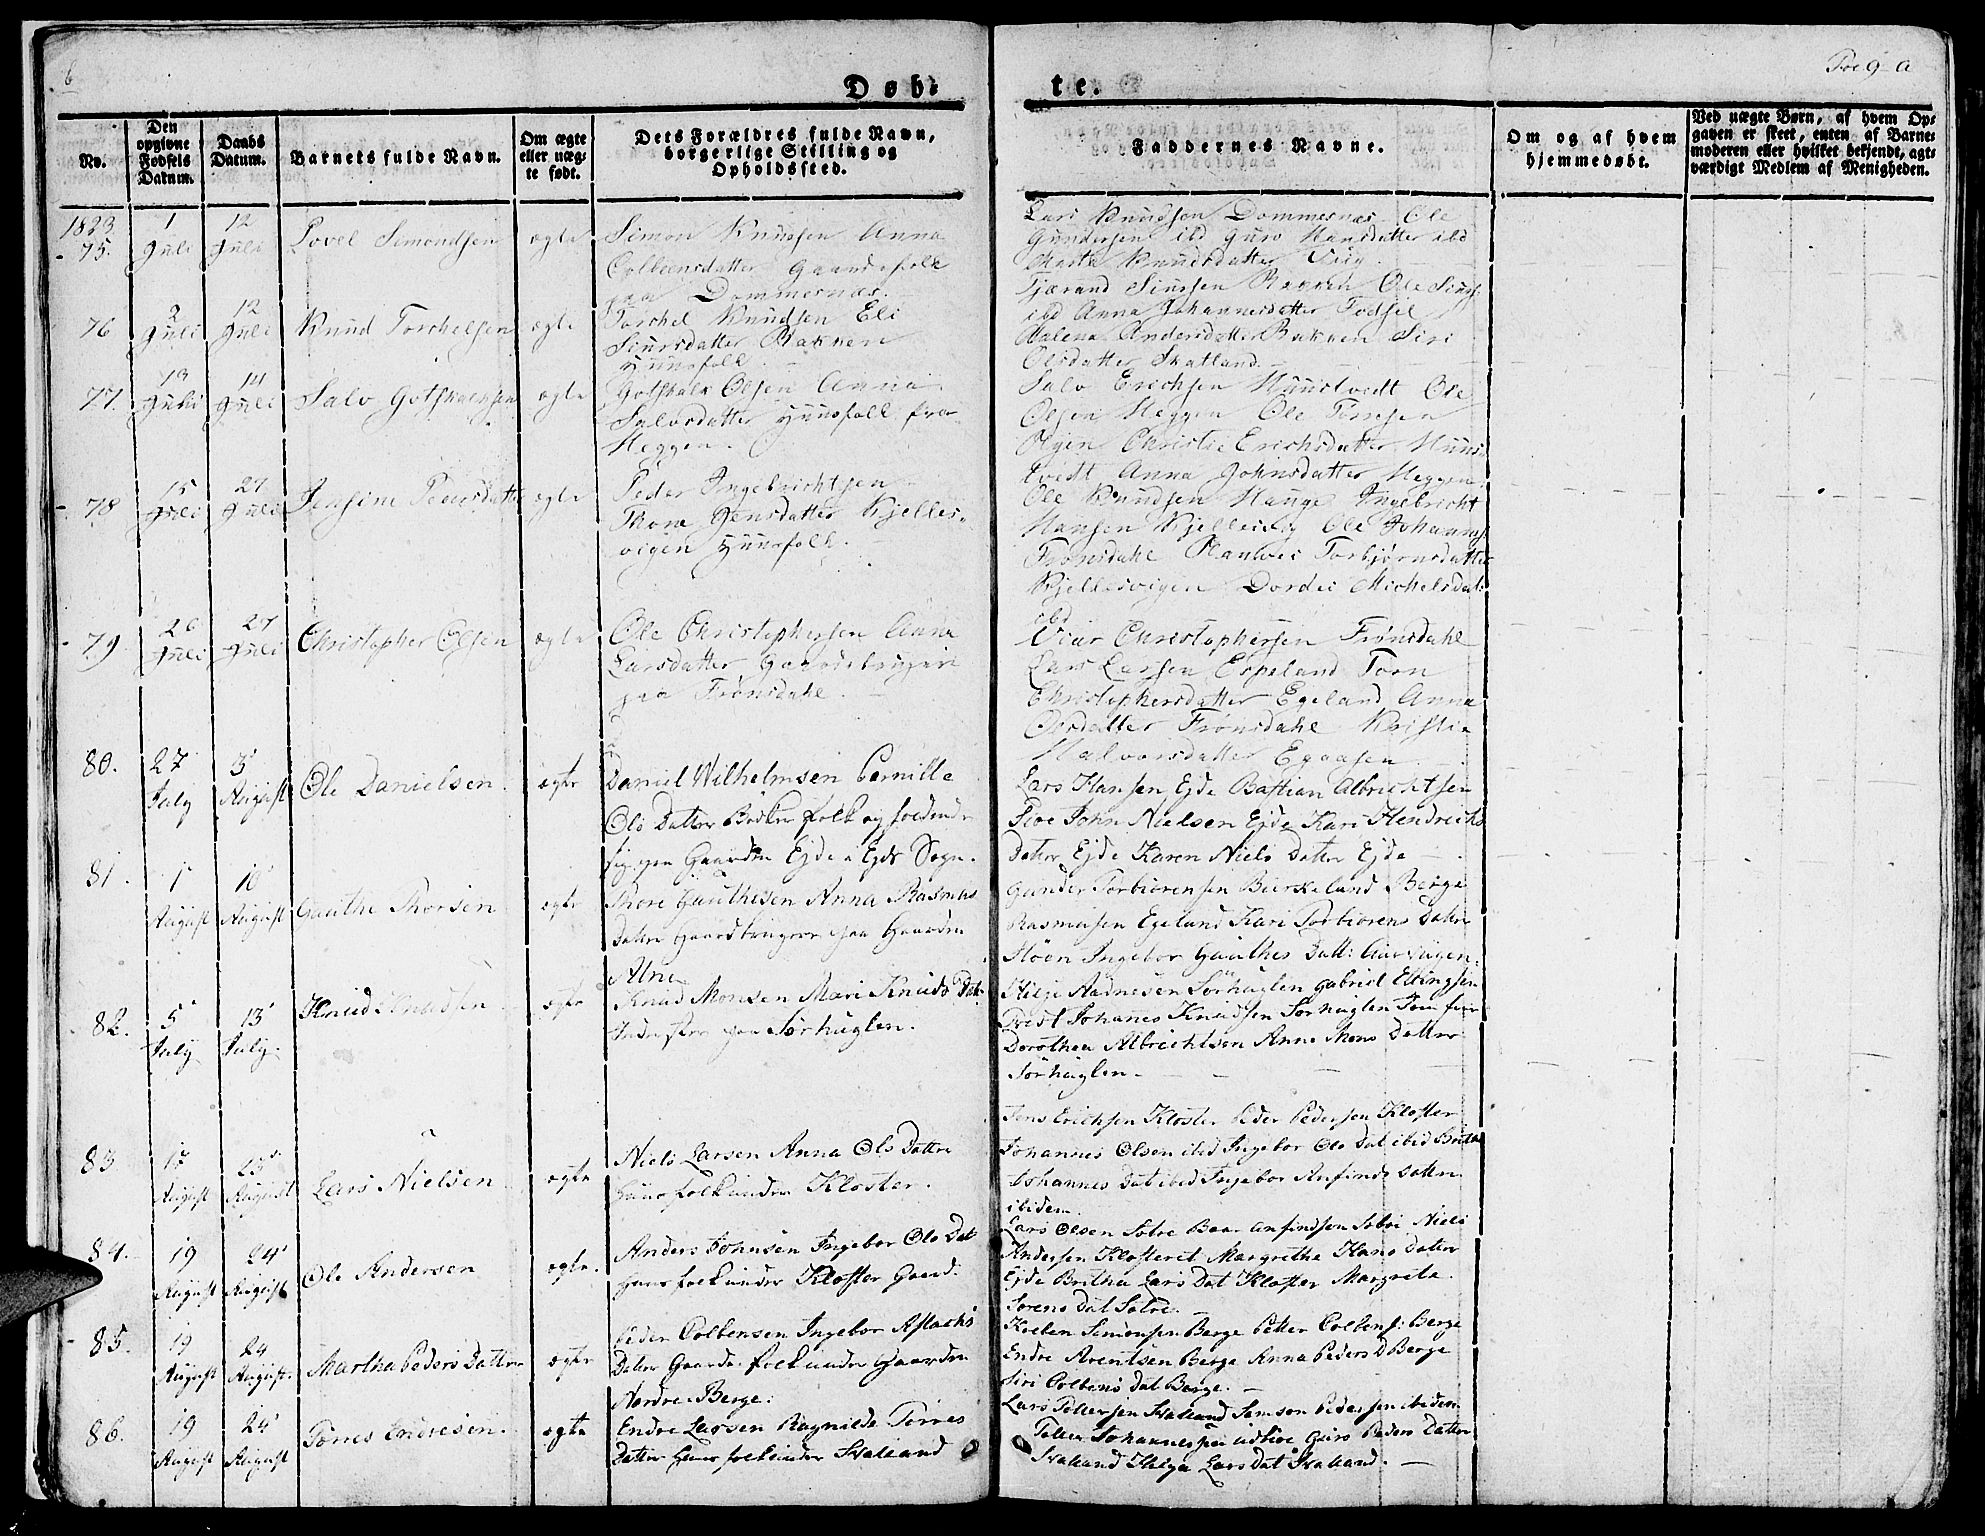 6
Døb-
te.
No.
Den opgivne Fødsels Datum.
Daabs Datum.
Barnets fulde Navn.
Om ægte eller uægte født.
Dets Forældres fulde Navn, borgerlige Stilling og Opholdssted.
Faddernes Navne.
Om og af hvem hjemmedøbt.
Ved uægte Børn, af hvem Opgaven er skeet, enten af Barnemoderen eller hvilket bekjendt, agtværdigt Medlem af Menigheden.
1823
75. 1 Juli 12 Juli Lovel Simondsen ægte
Simon Knudsen Anna
Colbensdatter Gaardsfolk
paa Dommersnæs.
Lars Knudsen Dommersnæs Ole
Gundersen ibd Guro Hansdatter ibd
Marta Knudsdatter
76 2 Juli 12 Juli Knud Torchelsen ægte
Torchel Knudsen Eli
Siursdatter Bakken
Huusfolk
Tjærand Siursen Bakken Ole Siurs
ibd Anna Johannesdatter
Malena Andersdatter Bakken Siri
Olsdatter Skatland
77. 13 Juli 14 Juli Salve Gotskalksen ægte
Gotskalk Olsen Anna
Salvesdatter Huusfolk fra
Heggen.
Salv Erichsen Huustvedt Ole
Olsen Heggen Ole
Christie Erichsdatter Huus
tvedt Anna Johnsdatter Heggen.
78 15 Juli 27 Juli Jensine Pedersdatte ægte
Peder Ingebrichtsen
Thone Jensdatter Kjelles-
vigen Huusfolk.
Ole Knudsen Hauge Ingebricht
Hansen Kjellesvig Ole Johannes
Frønsdahl Torbjørnsdatter
Kjellesvigen Dordei Michelsdat
ibd
79 26 Juli 27 Juli Christopher Olsen ægte
Ole Christophersen Anna
Larsdatter Gaardbruger
paa Frønsdahl.
Christophersen Frønsdahl
Lars Larsen Espeland Torn
Christophersdatter Egeland Anna
Olsdatter Frønsdahl Kristie
Halvorsdatter Egaasen.
80. 27 July 3 August Ole Danielsen ægte
Daniel Wilhelmsen Pernille
Ols Datter Bødker folk og
sig paa Gaarden Ejde i Ejds Sogn.
Lars Hansen Ejde Bastian Albrichtsen
John Nielsen Ejde Kari Hendrichs
Datter Ejde Karen Niels Datter Ejde
81. 1 August 10 August Gauthe Thorsen ægte
Thore Gauthesen Anna Rasmus
Datter Gaardbruger paa Gaarden
Alne
Gunder Torbiørensen Birkeland Børge
Rasmusen Egeland Kari Torbiørens Datter
Ingebor Gauthes Datt:
82. 5 July 13 July Knud Knudsen ægte
Knud Monsen Mari Knuds Dat
paa Sørhuglen.
Aadnesen Sørhuglen Gabriel Ellingsen
Johanes Knudsen Sørhuglen
Dorothea Albrichtsen Anne Mons Datter
Sørhuglen.
83 15 August 23 August Lars Nielsen ægte
Niels Larsen Anna Ols Datter
Huusfolk under Kloster.
Jens Erichsen Kloster Peder Pedersen Kloster
Johannes Olsen ibid Ingebor Ols Dat ibid Britha
Johannes Dat ibid Ingebor Anfinds Datter
ibidem.
84. 19 August 24 August Ole Andersen ægte.
Anders Johnsen Ingebor Ols Dat
Huusfolk under Kloster Gaard.
Lars Olsen Sætre Anfindsen Niels
Andersen Klosteret Margrethe Hans Datter
Ejde Britha Lars Dat Kloster Margreta
Sørens Dat Sætre.
85. 19 August 24 August. Martha Peders Datter ægte
Peder Colbensen Ingebor Aslachs
Datter Gaards folk under Gaarden
Nordre Berge.
Kolben Simonsen Berge Petter Colbens: Berge
Endre Arentsen Berge Anna Peders D Berge
Siri Colbens Dat Berge.
86. 19 August 24 August Torres Endresen. ægte
Endre Larsen Ragnilde Torres
Datter Huusfolk under Skaland
Lars Pettersen Skaland Samson Pedersen ibidem
Johannesen Guro Peders Datter
Skaland Helga Lars Dat Skaland.